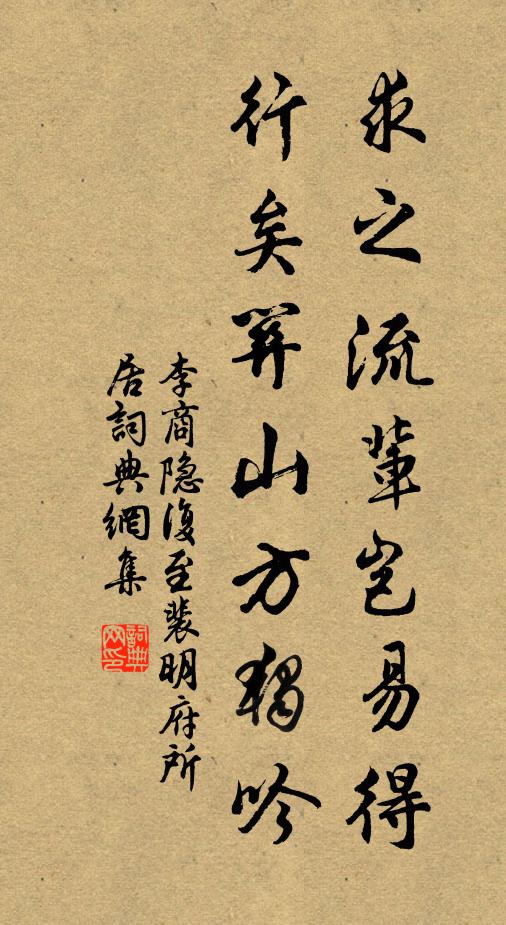 求之流輩豈易得
行矣關山方獨吟
李商隐復至裴明府所
居詞典網集
詞典
网印